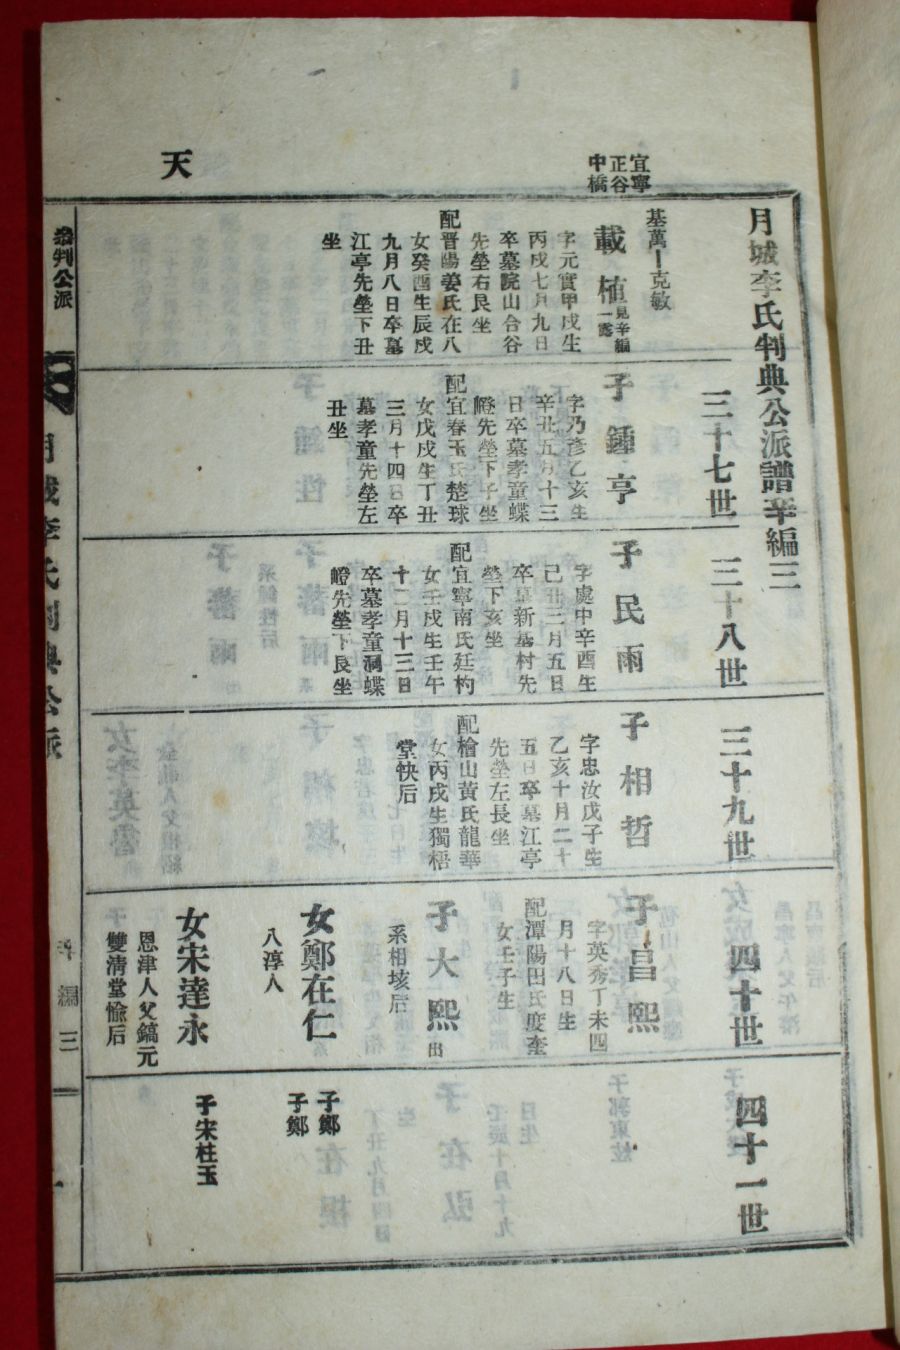 天
宜寧
正谷
中橋
月城李氏判典公派譜辛編三
基萬ー克敏
載植
見辛編
一露
字元實甲戌生
丙戌七月九日
卒墓院山合谷
先塋右艮坐
配晋陽姜氏在八
女癸酉生辰戌
九月八日卒墓
江亭先塋下丑
坐
三十七世
子鍾亨
字乃彥乙亥生
辛丑五月十三
日卒墓孝童蝶
嶝先塋下子坐
配宜春玉氏楚球
女戊戌生丁丑
三月十四日卒
墓孝童先塋左
丑坐
三十八世
子民雨
字處中辛酉生
己丑三月五日
卒墓新基村先
塋下亥坐
配宜寧南氏廷杓
女壬戌生壬午
十二月十三日
卒墓孝童洞蝶
嶝先塋下艮坐
三十九世
子相哲
字忠汝戊子生
乙亥十月二十
五日卒墓江亭
先塋左長坐
配檜山黃氏龍華
女丙戌生獨梧
堂快后
四十世
子昌熙
字英秀丁未四
月十八日生
配潭陽田氏度奎
女壬子生
子大熙
出
系相垓后
女鄭在仁
八淳人
女宋達永
恩津人父鎬元
雙清堂愉后
四十一世
子鄭
子鄭
子宋柱玉
月城李氏判典公派
編三